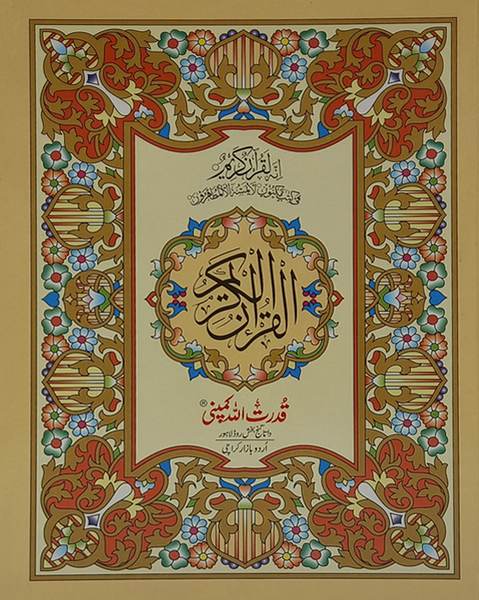 إنه لقرآن كريم
في كتب مكنون لا يمسه إلا المطهرون
القرآن الكريم
قدرت اللہ کمپنی ®
داتا گنج بخش روڈ لاہور
اُردو بازار کراچی